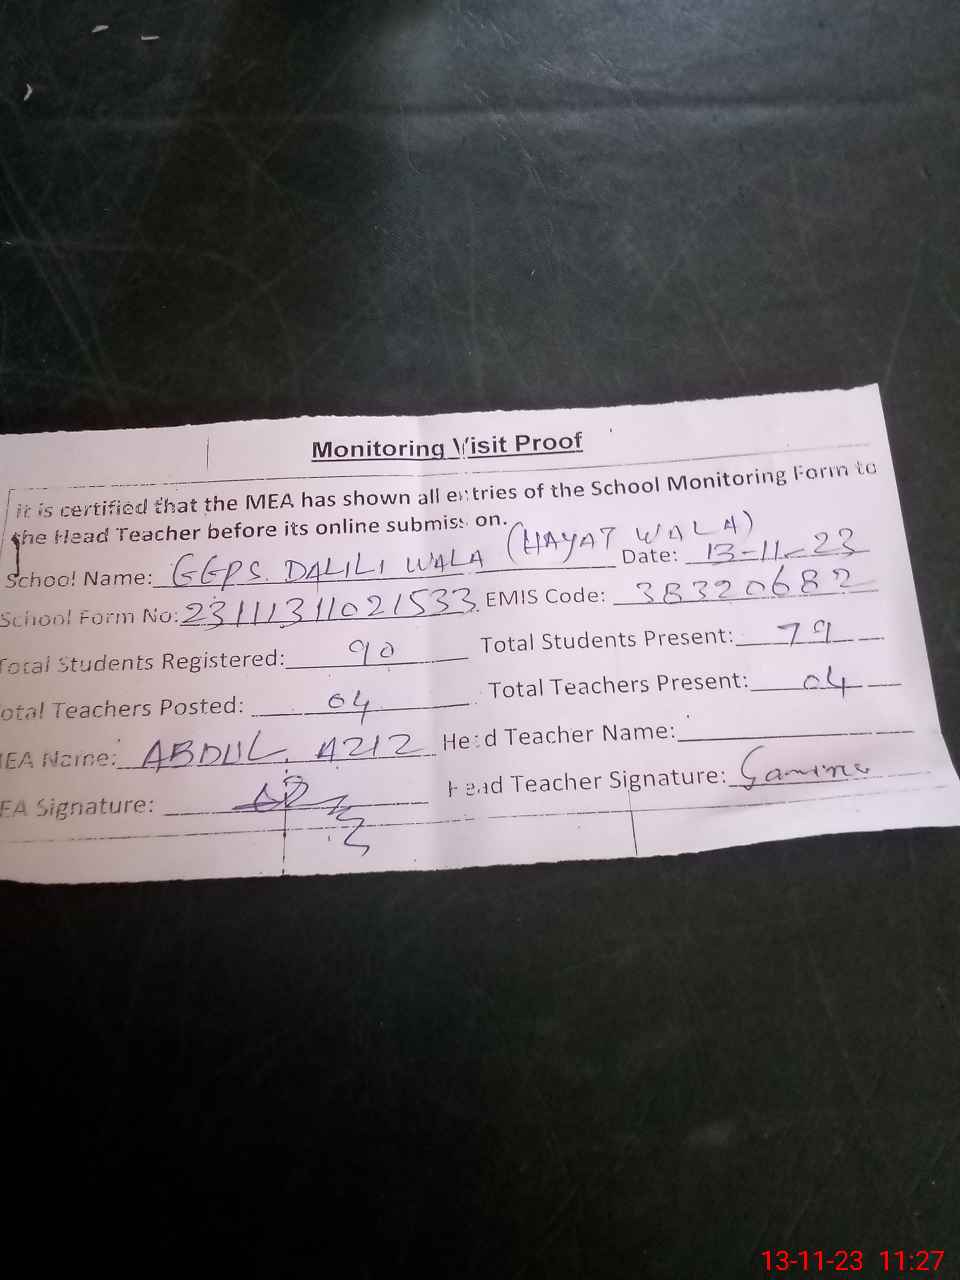 Monitoring Visit Proof
it is certified that the MEA has shown all entries of the School Monitoring Form to
the Head Teacher before its online submission.
School Name: GGPS. DALILI WALA (HAYAT WALA) Date: 13-11-23
School Form No: 23111311021533 EMIS Code: 38320682
Total Students Registered: 90 Total Students Present: 79
otal Teachers Posted: 04 Total Teachers Present: 04
MEA Name: ABDUL AZIZ Head Teacher Name:
EA Signature: Head Teacher Signature:
13-11-23 11:27